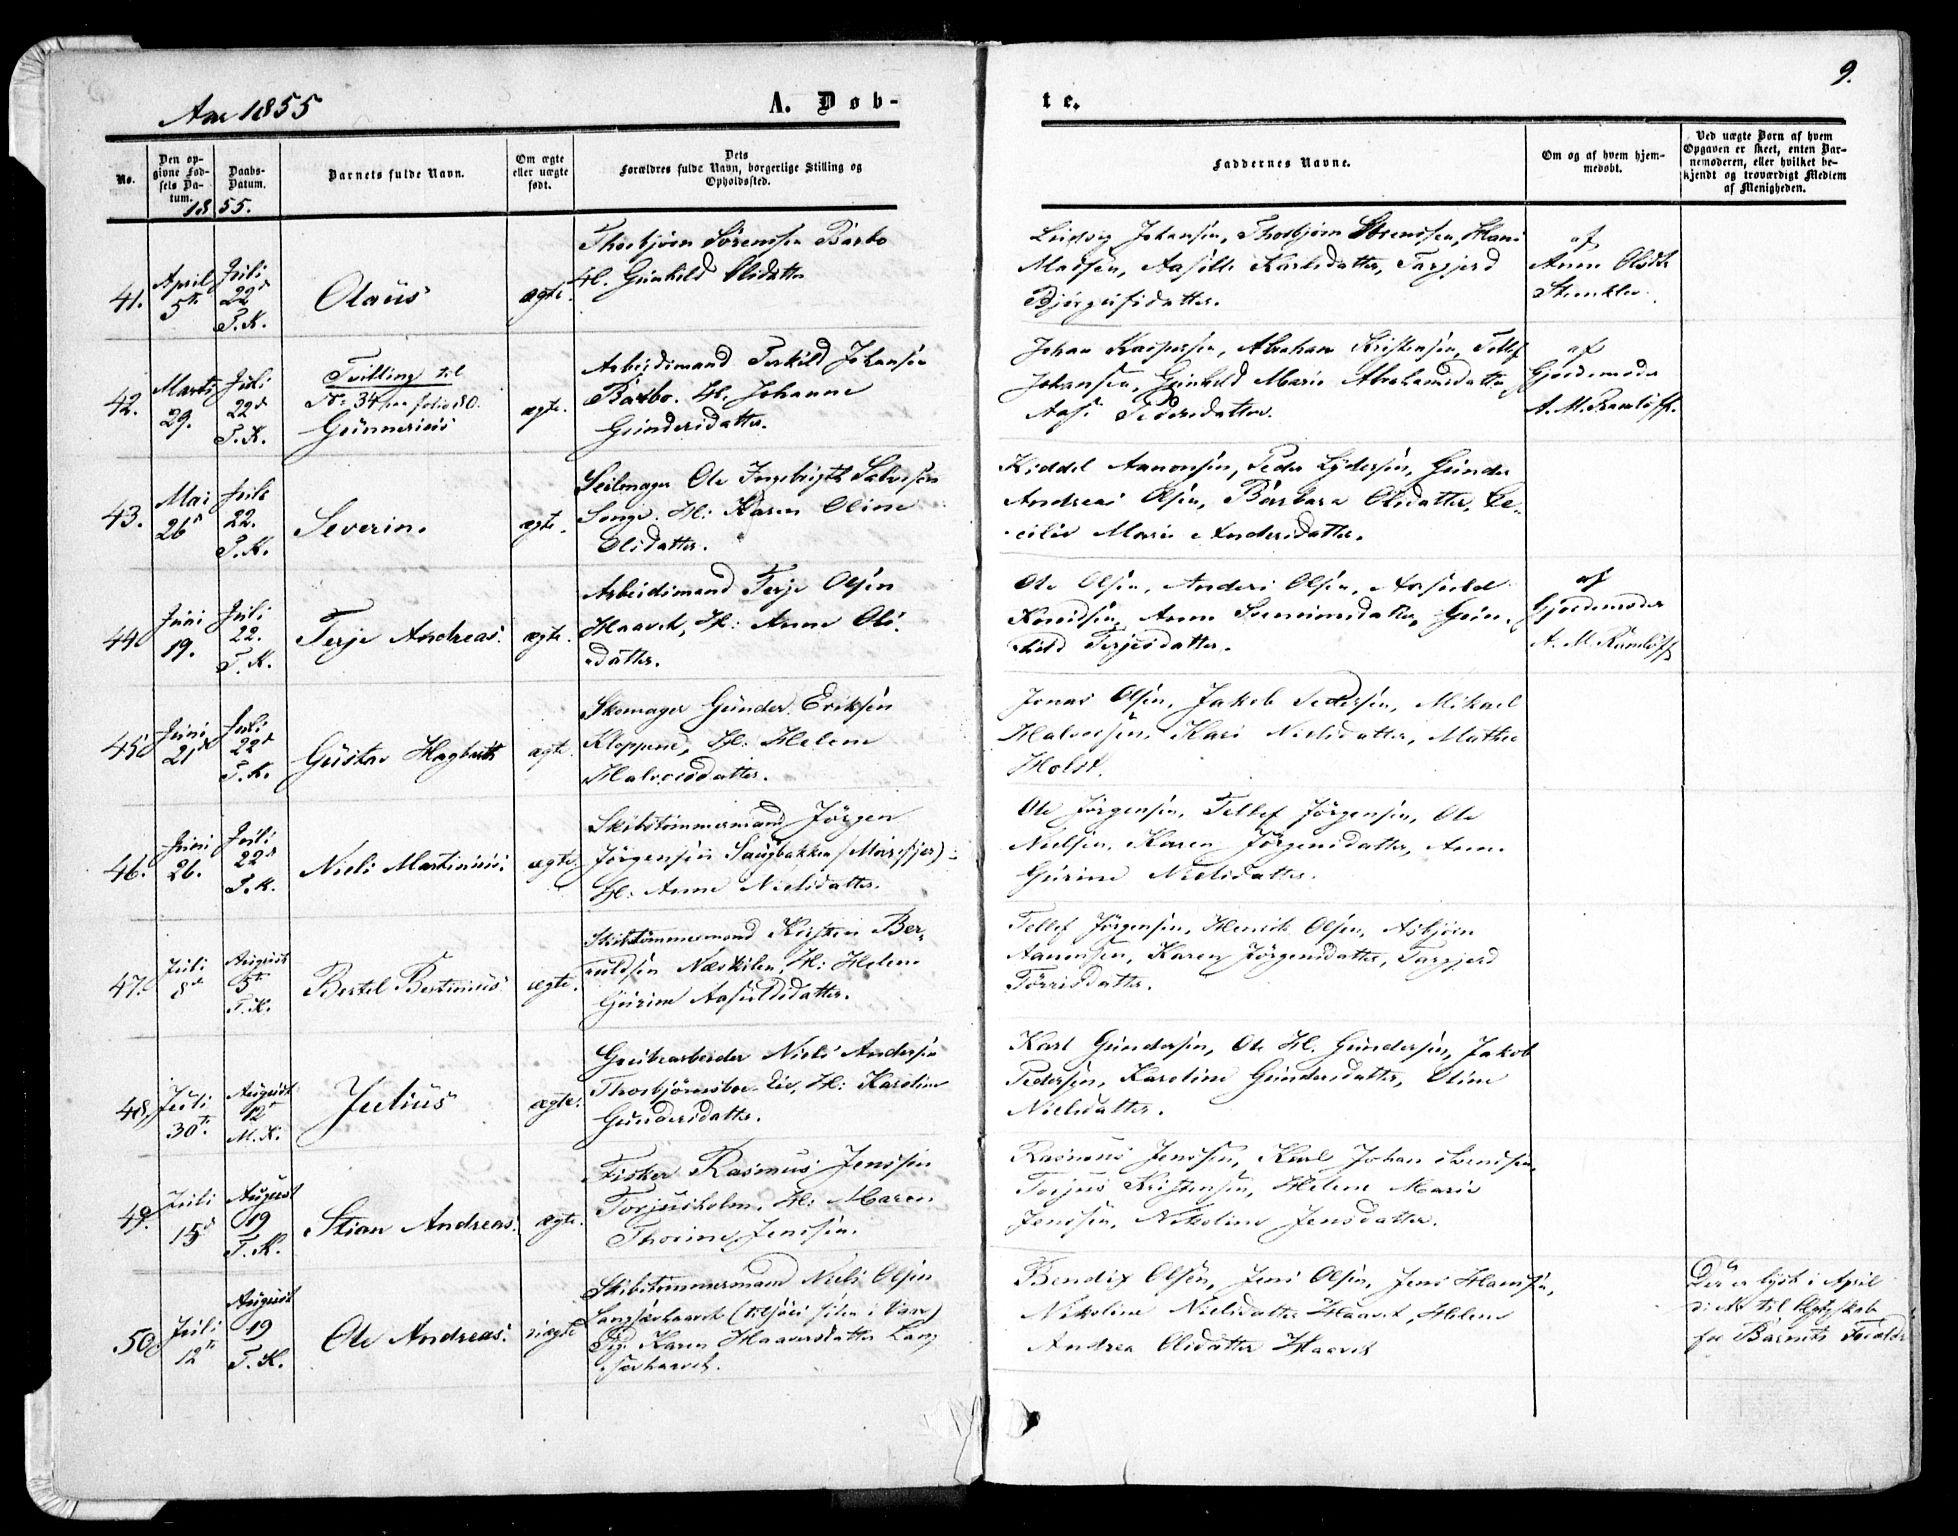 Aar 1855
A. Døb-
te.
9.
No.
Den op-
givne Fød-
sels Da-
tum.
Daabs-
Datum.
1855.
Barnets fulde Navn.
Om ægte
eller uægte
født.
Dets
Forældres fulde Navn, borgerlige Stilling og
Opholdssted.
Faddernes Navne.
Om og af hvem hjem-
medøbt.
Ved uægte Børn af hvem
Opgaven er skeet, enten Bar-
nemoderen, eller hvilket be-
kjendt og troværdigt Medlem
af Menigheden.
41.
April
5te
Juli
22d
T. K.
Olaus
ægte.
Thorbjørn Sörensen Barbo
H. Gunhild Olsdatter
Ludvig Johansen, Thorbjörn Sörensen, Hans
Madsen, Karlsdatter, Targjerd
Bjørgufsdatter.
af
Anne Olsdtr
42.
Marts
29.
Juli
22d
T. K.
Tvilling til
No 34 paa folio 80.
Gunnerius
ægte.
Arbeidsmand Terkild Johansen
Barbo. H. Johanne
Gundersdatter.
Johan Kaspersen, Abraham Kristensen, Tellef
Johansen, Gunhild Marie Abrahamsdatter
Aase Pedersdatter.
af
Gjordemoder
A. M. Ramløff.
43.
Mai
26d
Juli
22.
T. K.
Severin.
ægte.
Seilmager Ole Ingebrigt Salvesen
Songe. H: Karen Oline
Olsdatter.
Kiddel Aanonsen, Peder Lydersen, Gunder
Andreas Olsen, Barbara Olsdatter, Ce-
cilie Marie Andersdatter.
44.
Juni
19.
Juli
22.
T. K.
Terje Andreas.
ægte.
Arbeidsmand Terje Olsen
Haavet, H: Anne Ols-
datter.
Ole Olsen, Anders Olsen, Aasuld
Knudsen, Anne Svenningsdatter, Gun-
hild Terjesdatter.
af
Gjordemoder
A. M. Ramløff
45.
Juni
21d
Juli
22d
T. K.
Gustav Hagbarth
ægte.
Skomager Gunder Eriksen
Kloppene, H: Helene
Halvorsdatter.
Jonas Olsen, Jakob Pedersen, Mikael
Halvorsen, Kari Nielsdatter, Mathe
Holst.
46.
Juni
26.
Juli
22d
T. K.
Niels Martinius.
ægte.
Skibstømmermand Jörgen
Jörgensen Saugbakken (Marisfjer)
H: Anne Nielsdatter.
Ole Jörgensen, Tellef Jörgensen, Ole
Nielsen, Karen Jörgensdatter, Anne
Gurine Nielsdatter.
47.
Juli
8de
August
5te
T. K.
Bertel Bertinius
ægte.
Skibstømmermand Kirsten Ber-
tuldsen Næskilen, H: Helene
Gurine Aasuldsdatter.
Tellef Jörgensen, Henrik Olsen, Asbjörn
Aanonsen, Karen Jörgensdatter, Targjerd
Törrisdatter.
48.
Juli
30te.
August
12te
M. K.
Julius
ægte.
Grubearbeider Niels Andersen
Thorbjörnsboe Eie, H: Karoline
Gundersdatter.
Karl Gundersen, Ole H. Gundersen, Jakob
Pedersen, Karoline Gundersdatter, Oline
Nielsdatter.
49.
Juli
15d
August
19
T. K.
Stian Andreas.
ægte.
Fisker Rasmus Jenssen
Torjusholm, H: Maren
Thorine Jenssen.
Rasmus Jenssen, Karl Johan Svendsen,
Torjus Kristensen, Helene Marie
Jenssen, Nikoline Jensdatter.
50.
Juli
12te
August
19
T. K.
Ole Andreas.
uægte
Skibstømmermand Niels Olsen
Langsævhaavet (tilsöes siden i Vaar)
Pig. Karen Haaversdatter Lang
sævhaavet.
Bendix Olsen, Jens Olsen, Jens Hansen,
Nikoline Nielsdatter Haavet, Helene
Andrea Olsdatter Haavet
Der er lyst i April
til Ægteskab
for Barnets Foræld: